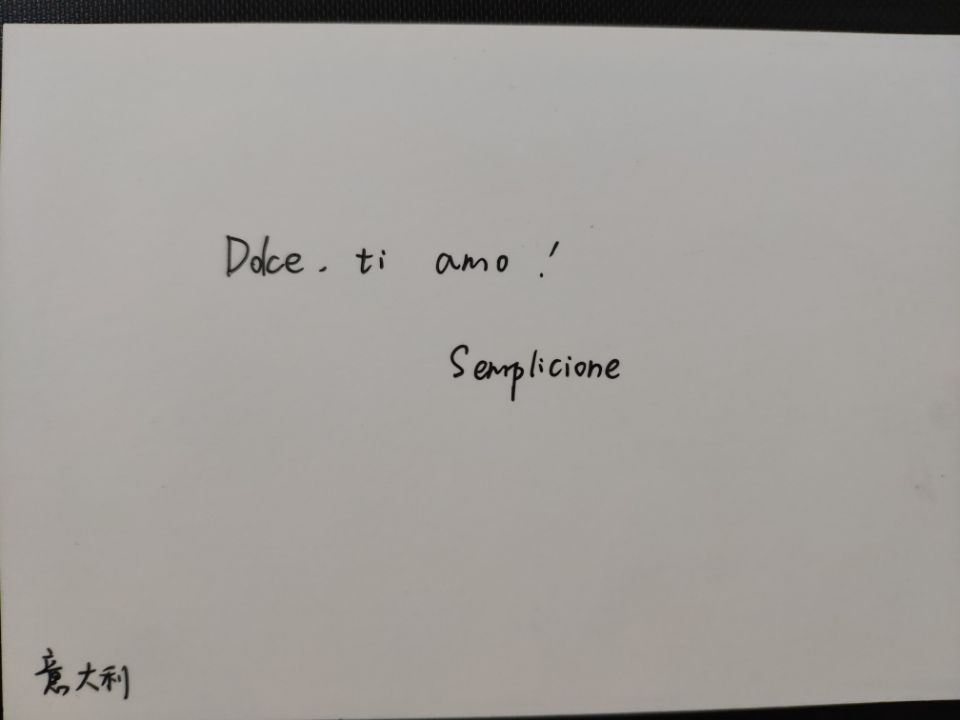 Dolce. ti amo!
Semplicione
意大利